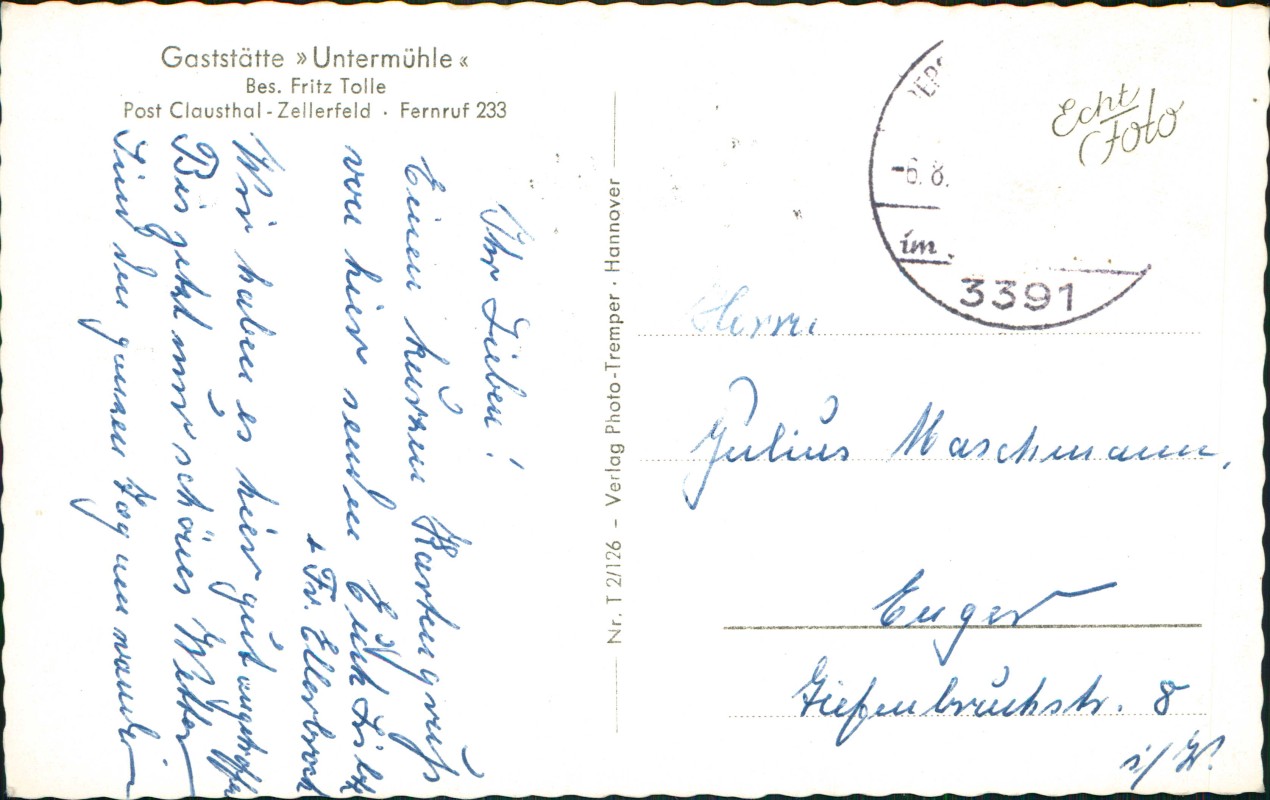 Gaststätte »Untermühle«
Bes. Fritz Tolle
Post Clausthal-Zellerfeld · Fernruf 233
Ihr Lieben!
Einen kurzen Kartengruß
von hier senden Euch
+ Fr. Ellerbrock
Wir haben es hier gut angetroffen
Bis jetzt nur schönes Wetter
Sind den ganzen Tag am wandern
Nr. T 2/126 – Verlag Photo-Tremper · Hannover
-6.8.
im
3391
Echt
Foto
Herrn
Julius Maschmann,
Enger
Tiefenbruchstr. 8
i/W.